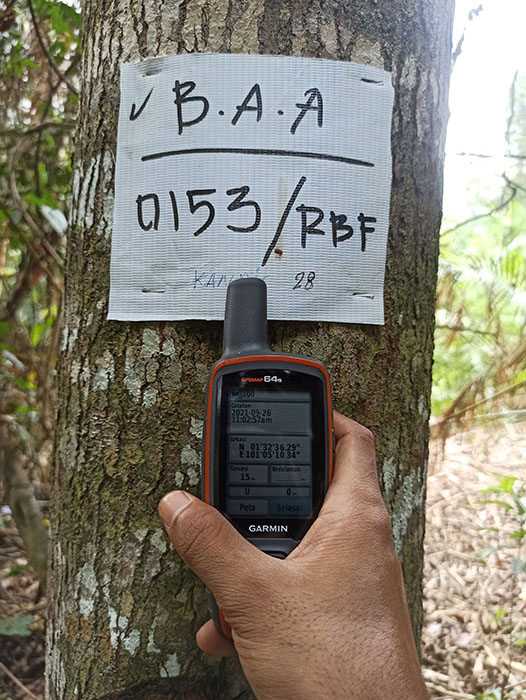 ✓ B.A.A
0153/RBF
28
GPSMAP 64s
Catatan
2021-09-26
11:02:57am
Lokasi
N 01°32'36.29"
E 101°05'10.34"
Elevasi Kedalaman
15
U 0
Peta Selesai
GARMIN